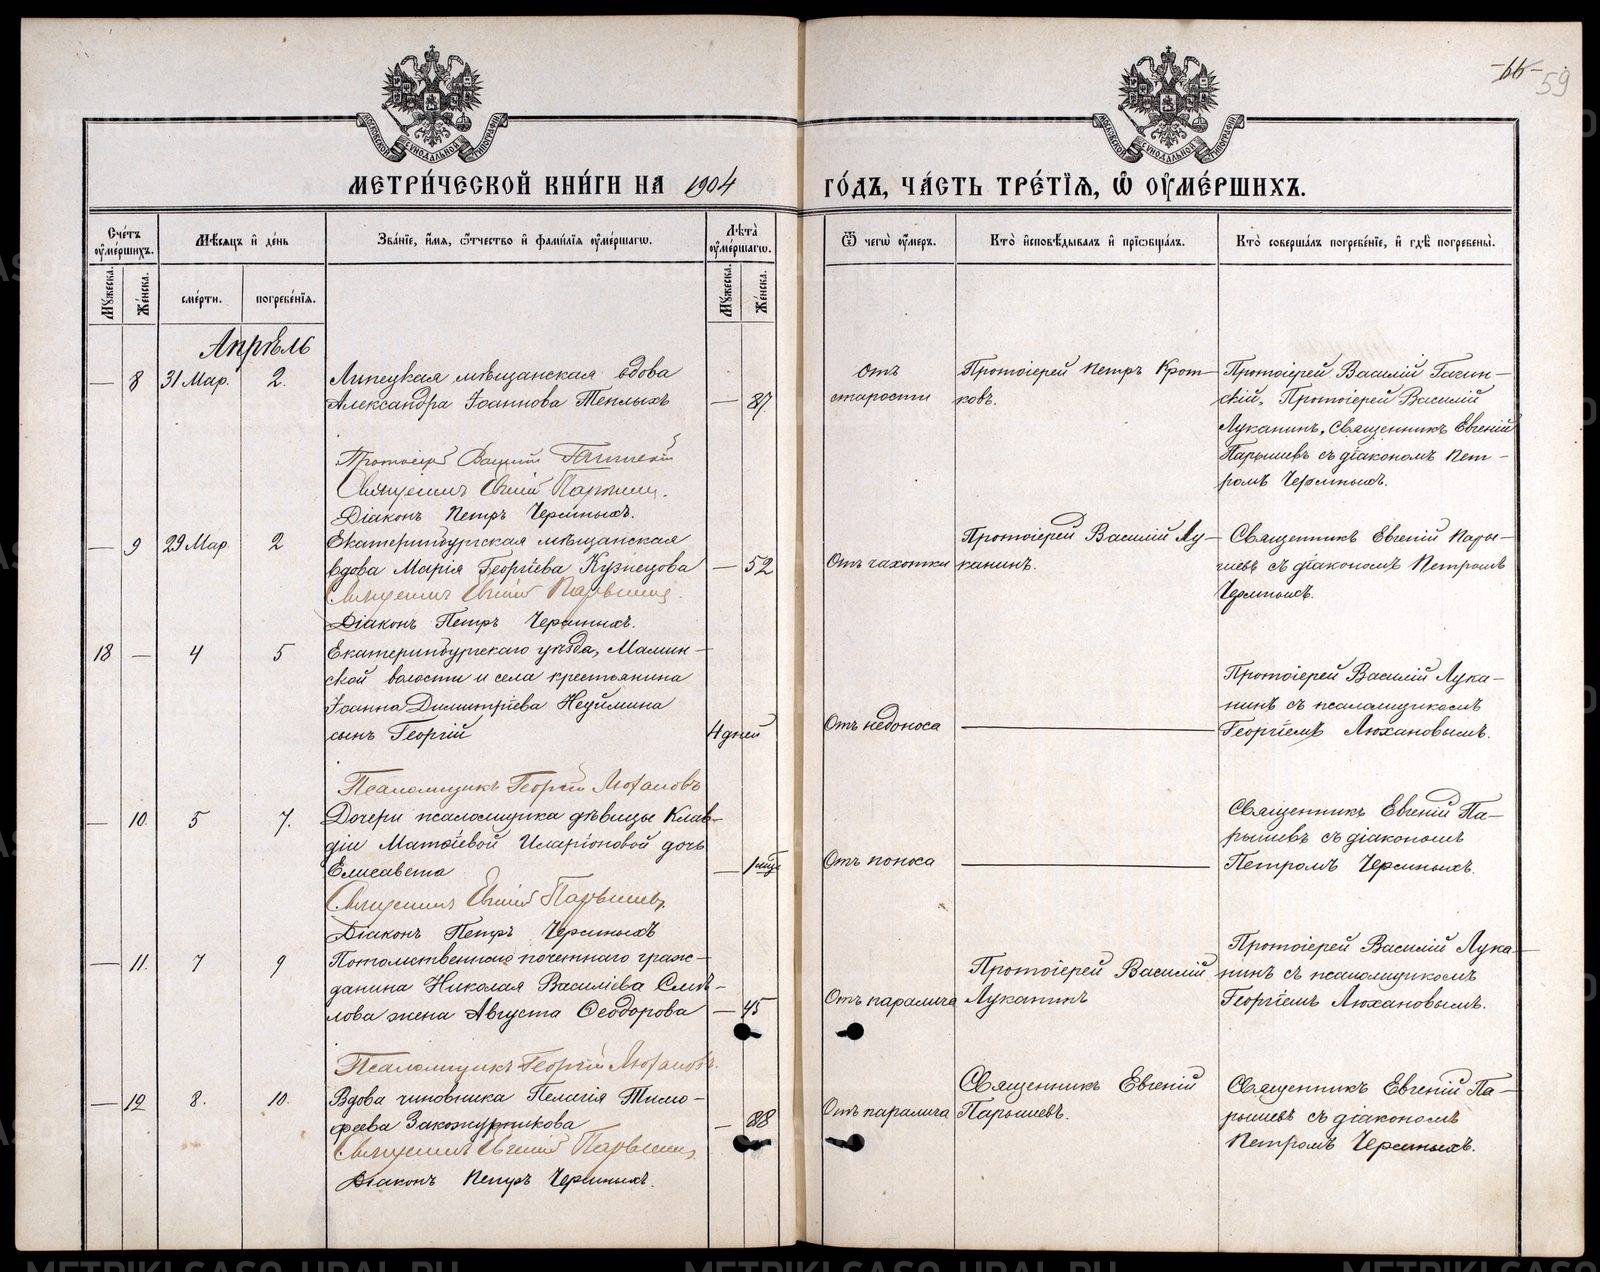 -66- 59
МОСКОВСКОЙ СѴНОДАЛЬНОЙ ТИПОГРАФІИ
МОСКОВСКОЙ СѴНОДАЛЬНОЙ ТИПОГРАФІИ
МЕТРИ́ЧЕСКОЙ КНИ́ГИ НА 1904
ГО́ДЪ, ЧА́СТЬ ТРЕ́ТІѦ, Ѡ҆ ОУ҆МЕ́РШИХЪ.
Сче́тъ оу҆ме́ршихъ.
Мꙋ́жеска.
Же́нска.
Мѣ́сяцъ и҆ де́нь
сме́рти.
погребе́нїѧ.
Зва́нїе, и҆́мѧ, ѻ҆́тчество и҆ фами́лїѧ оу҆ме́ршагѡ.
Лѣ́та оу҆ме́ршагѡ.
Мꙋ́жеска.
Же́нска.
Ѿ чегѡ̀ оу҆́меръ.
Кто̀ и҆сповѣ́дывалъ и҆ прїѡбща́лъ.
Кто̀ соверша́лъ погребе́нїе, и҆ гдѣ̀ погребены̀.
Апрѣль
— 8 31 Мар. 2.
Липецкая мѣщанская вдова
Александра Іоаннова Теплыхъ — 87
отъ
старости
Протоіерей Петръ Крот-
ковъ.
Протоіерей Василій Гагин-
скій, Протоіерей Василій
Луканинъ, Священникъ Евгеній
Парышевъ съ діакономъ Пет-
ромъ Черемныхъ.
Священникъ Евгеній Парышевъ.
Діаконъ Петръ Черемныхъ.
— 9 29 Мар. 2
Екатеринбургская мѣщанская
вдова Марія Георгіева Кузнецова — 52
Отъ чахотки
Протоіерей Василій Лу-
канинъ.
Священникъ Евгеній Пары-
шевъ съ діакономъ Петромъ
Черемныхъ.
Священникъ Евгеній Парышевъ.
Діаконъ Петръ Черемныхъ.
18 — 4 5
Екатеринбургскаго уѣзда, Мамин-
ской волости и села крестьянина
Іоанна Димитріева Неуймина
сынъ Георгій 4 дней
Отъ недоноса
Протоіерей Василій Лука-
нинъ съ псаломщикомъ
Георгіемъ Люхановымъ.
Псаломщикъ Георгій Люхановъ
— 10. 5 7.
Дочери псаломщика дѣвицы Клав-
діи Матѳіевой Иларіоновой дочь
Елисавета — 1 мѣс.
Отъ поноса
Священникъ Евгеній Па-
рышевъ съ діакономъ
Петромъ Черемныхъ.
Священникъ Евгеній Парышевъ,
Діаконъ Петръ Черемныхъ
— 11. 7 9
Потомственнаго почетнаго граж-
данина Николая Василіева Смѣ-
лова жена Августа Ѳеодорова — 45
Отъ паралича
Протоіерей Василій
Луканинъ
Протоіерей Василій Лука-
нинъ съ псаломщикомъ
Георгіемъ Люхановымъ.
Псаломщикъ Георгій Люхановъ.
— 12 8. 10.
Вдова чиновника Пелагія Тимо-
феева Закожурникова — 88
Отъ паралича
Священникъ Евгеній
Парышевъ.
Священникъ Евгеній Па-
рышевъ съ діакономъ
Петромъ Черемныхъ.
Священникъ Евгеній Парышевъ,
Діаконъ Петръ Черемныхъ.